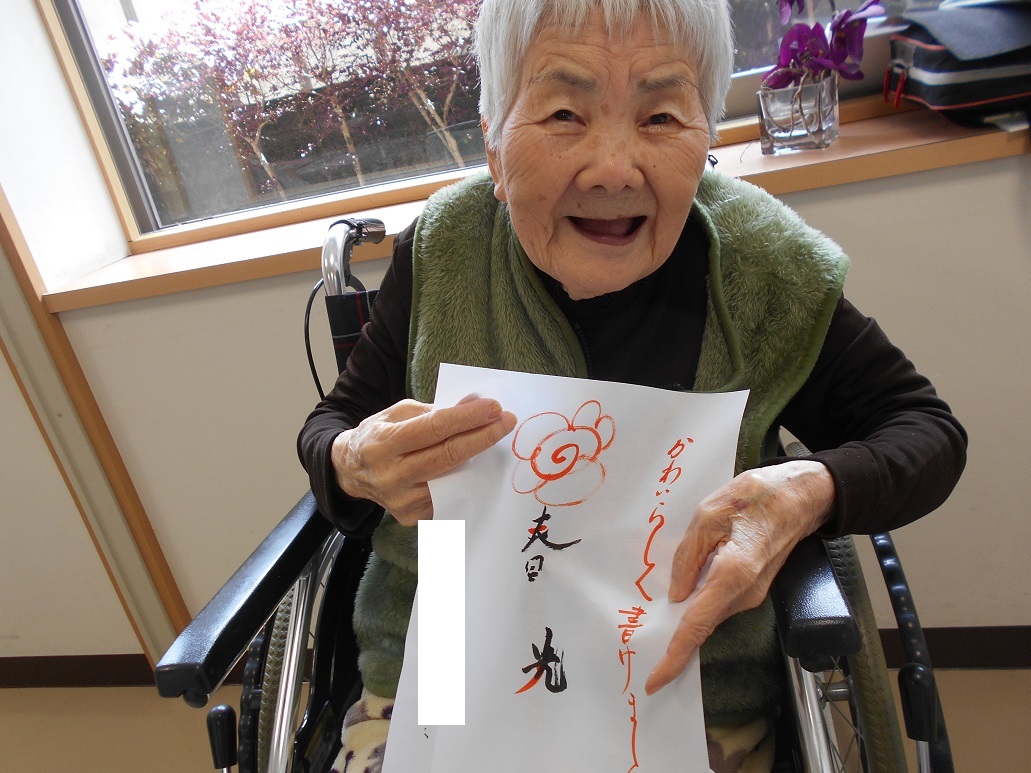 かわいらしく書けまし
春光